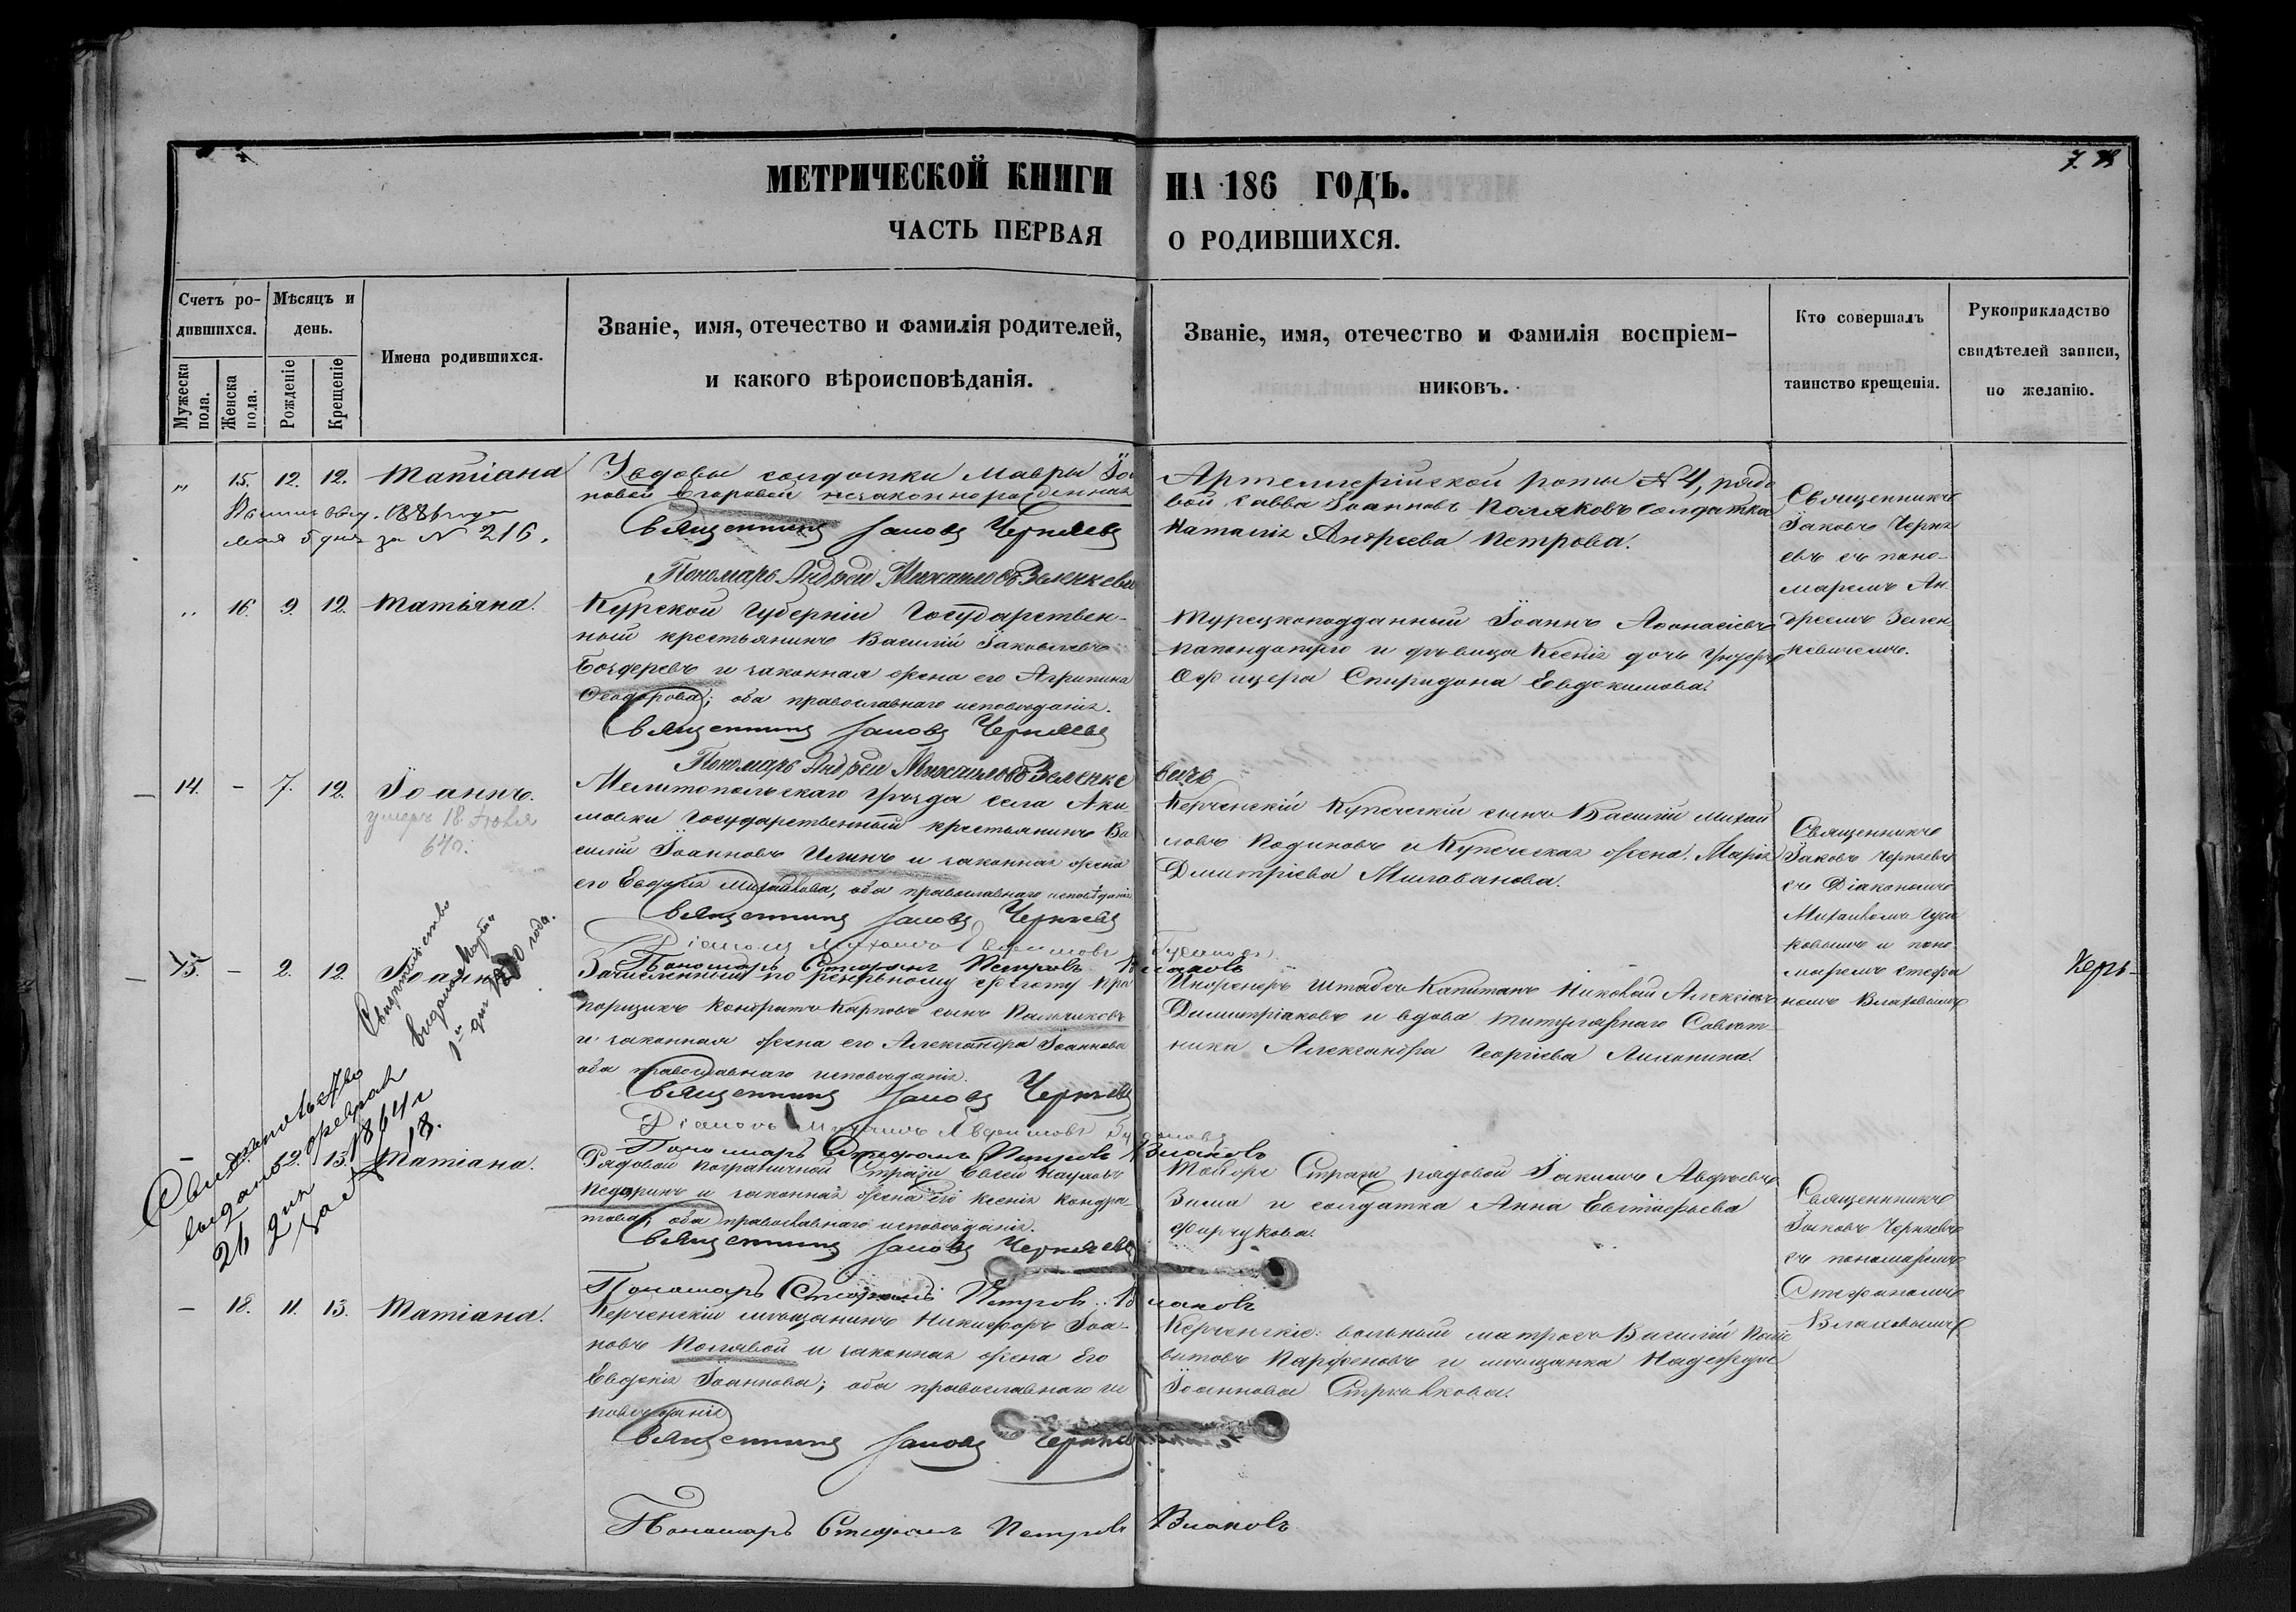 МЕТРИЧЕСКОЙ КНИГИ НА 186 ГОДЪ.
ЧАСТЬ ПЕРВАЯ О РОДИВШИХСЯ.
Счетъ ро-
дившихся.
Мужеска пола.
Женска пола.
Мѣсяцъ и
день.
Рожденіе
Крещеніе
Имена родившихся.
Званіе, имя, отечество и фамилія родителей,
и какого вѣроисповѣданія.
Званіе, имя, отечество и фамилія воспріем-
никовъ.
Кто совершалъ
таинство крещенія.
Рукоприкладство
свидѣтелей записи,
по желанію.
„ 15. 12. 12. Татіана
выд. 1881 года
мая 5 дня за N 216.
У вдовы солдатки Мавры Іоа
новой Егоровой незаконнорожденная
Священникъ Іаковъ Черняевъ
Пономарь Андрей Михайловъ Зеленкевич
Артиллерійской роты N 4, рядо
вой Савва Іоанновъ Поляковъ солдатка
Наталія Андреева Петрова.
Священникъ
Іаковъ Черня
евъ съ поно-
маремъ Ан
дреемъ Зелен
кевичемъ.
„ 16. 9. 12. Татіяна.
Курской Губерніи Государствен-
ный крестьянинъ Василій Іаковлевъ
и законная жена его Агрипина
Ѳеодорова; оба православнаго исповѣданія.
Священникъ Іаковъ Черняевъ
Пономарь Андрей Михайловъ Зеленкевичъ
Турецкоподданный Іоаннъ Аѳанасіевъ
и дѣвица Ксенія дочь Унтеръ
Офицера Спиридона Евдокимова.
14. - 7. 12. Іоаннъ.
умеръ 18 Іюля
64 г.
Мелитопольскаго уѣзда села Аки
мовки Государственный крестьянинъ Ва
силій Іоанновъ Илинъ и законная жена
его Евдокія Михайлова, оба православнаго исповѣданія
Священникъ Іаковъ Черняевъ
Діаконъ Михаилъ Евфимовъ Гусаковъ
Пономарь Стефанъ Петровъ Влаховъ
Керченскій Купеческій сынъ Василій Михаи
ловъ Кодиновъ и Купеческая жена Марія
Димитріева Милованова.
Священникъ
Іаковъ Черняевъ
съ Діакономъ
Михаиломъ Гуса
ковымъ и поно
маремъ Стефа
номъ Влаховымъ
15. - 2. 12. Іоаннъ
Свидѣтельство
выдано
1880 года.
Зачисленный по резервному Пра
порщикъ Кондратъ Карповъ сынъ Пальчиковъ
и законная жена его Александра Іоаннова
оба православнаго исповѣданія.
Священникъ Іаковъ Черняевъ
Діаконъ Михаилъ Евфимовъ Гусаковъ
Пономарь Стефанъ Петровъ Влаховъ
Инженеръ Штабсъ Капитанъ Николай Алексіевъ
Димитріаковъ и вдова Титулярнаго Совѣт
ника Александра Георгіева Лихонина.
Керч-
- 12. 13. Татіана.
Свидѣтельство
выдано февраля
26 дня 1864 г
за N 18.
Рядовой пограничной Стражи Наумовъ
и законная жена его Ксенія Кондра-
това, оба православнаго исповѣданія.
Священникъ Іаковъ Черняевъ
Пономарь Стефанъ Петровъ Влаховъ
Тойже Стражи рядовой Іакимъ Авдѣевъ
Зима и солдатка Анна Евстафьева
Фарчукова.
Священникъ
Іаковъ Черняевъ
съ пономаремъ
Стефаномъ
Влаховымъ
- 18. 11. 13. Татіана.
Керченскій мѣщанинъ Никифоръ Іоа-
новъ Полявой и законная жена его
Евдокія Іоаннова; оба православнаго ис
повѣданія
Священникъ Іаковъ Черняевъ
Пономарь Стефанъ Петровъ Влаховъ
Керченскіе: вольный матросъ Василій
Парфеновъ и мѣщанка Надежда
Іоаннова Стрѣлкова.